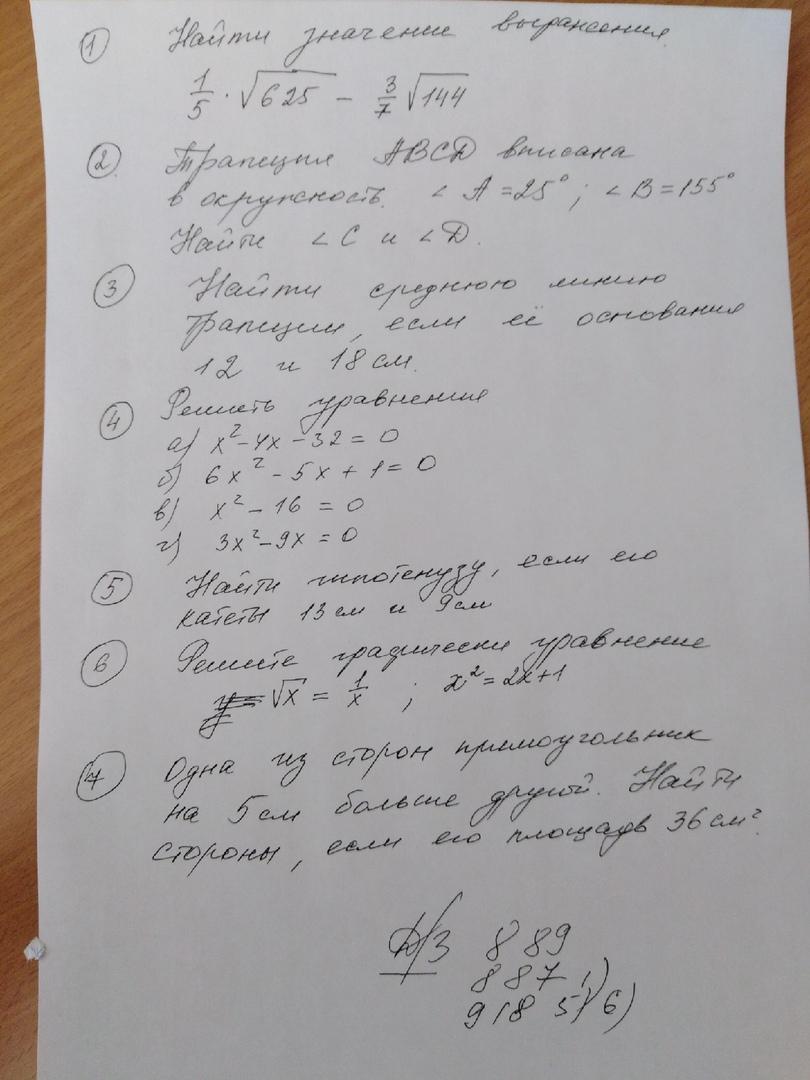 ① Найти значение выражения
1/5 · √625 – 3/7 √144
② Трапеция ABCD вписана
в окружность. ∠A = 25°; ∠B = 155°
Найти ∠C и ∠D.
③ Найти среднюю линию
трапции, если её основания
12 и 18 см.
④ Решить уравнения
а) x² – 4x – 32 = 0
б) 6x² – 5x + 1 = 0
в) x² – 16 = 0
г) 3x² – 9x = 0
⑤ Найти гипотенузу, если его
катеты 13 см и 9 см
⑥ Решите графически уравнение
√x = 1/x ; x² = 2x+1
⑦ Одна из сторон прямоугольник
на 5 см больше другой. Найти
стороны, если его площадь 36 см².
Д/З 889
887 1)
918 5) 6)